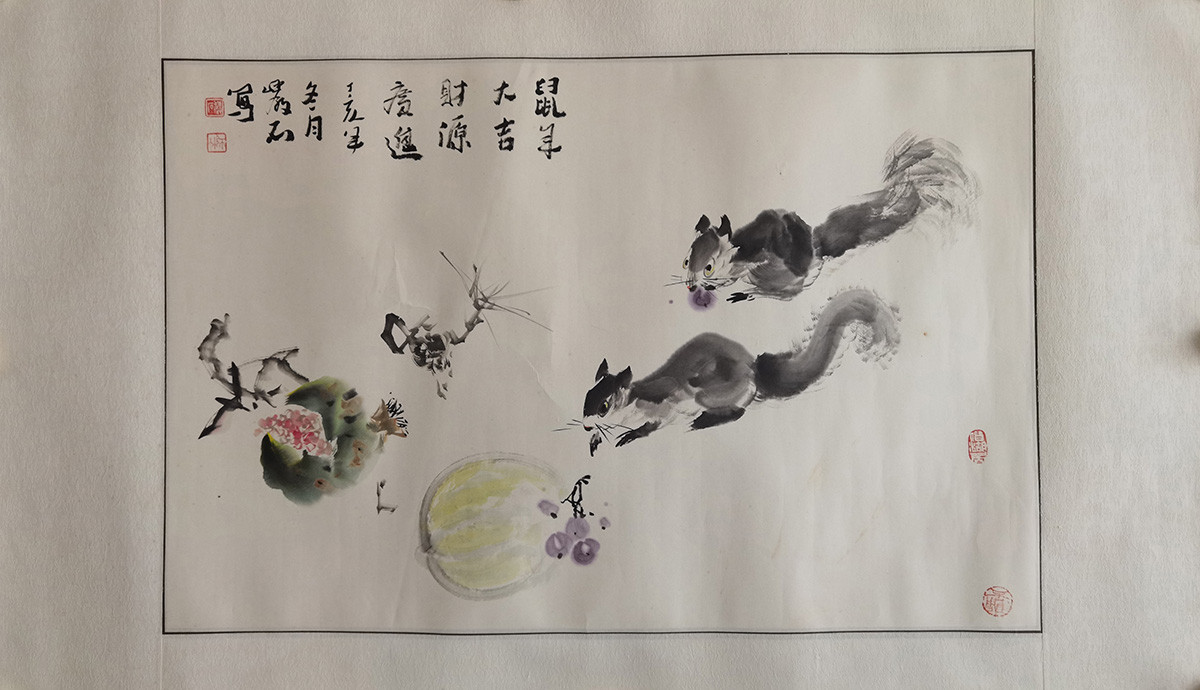 鼠年
大吉
財源
廣進
丁亥年
冬月
巖石
寫